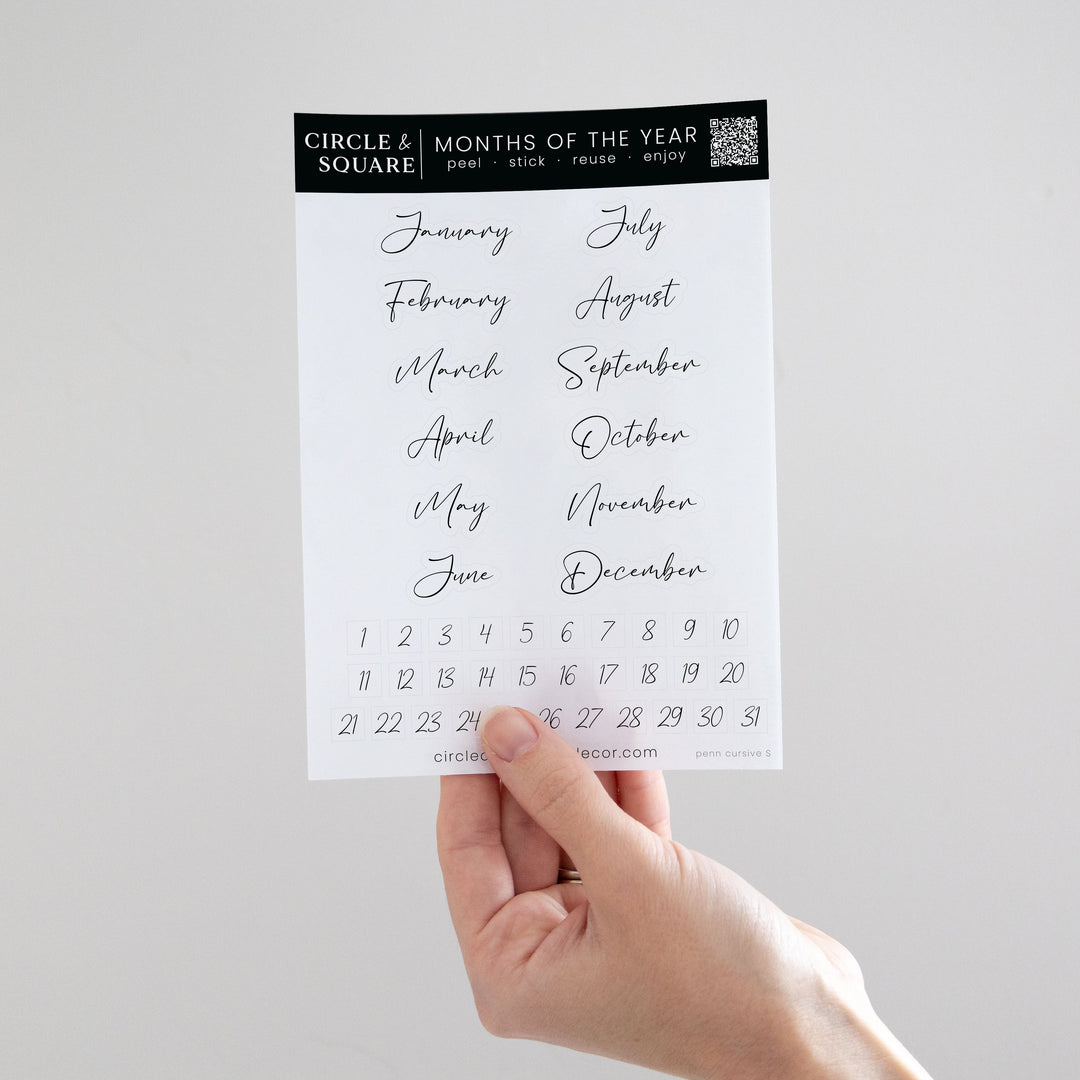 CIRCLE &
SQUARE
MONTHS OF THE YEAR
peel · stick · reuse · enjoy
January
February
March
April
May
June
July
August
September
October
November
December
1 2 3 4 5 6 7 8 9 10
11 12 13 14 15 16 17 18 19 20
21 22 23 24 26 27 28 29 30 31
penn cursive S